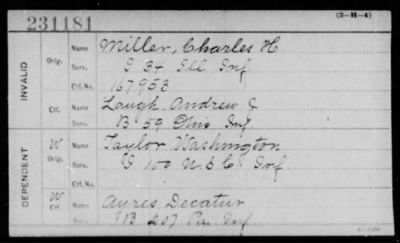 231181
(3-H-4)
INVALID
Orig.
Name Miller, Charles H.
Serv. G 34 Ill Inf
Ctf.No. 167958
Ctf.
Name Laugh Andrew J
Serv. B 59 Ohio Inf
DEPENDENT
W
Orig.
Name Taylor Washington
Serv. G 100 U.S.C. Inf
Ctf.No.
W
Ctf.
Name Ayres Decatur
Serv. B 207 Pa Inf